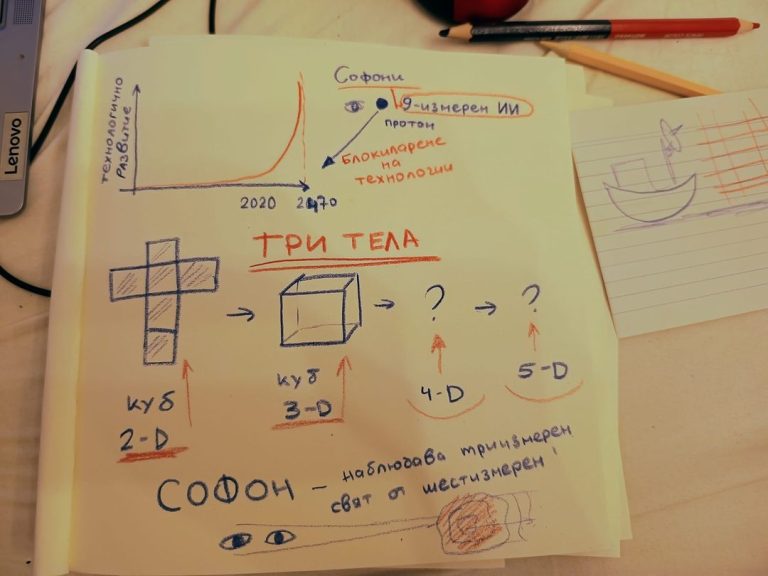 Lenovo
технологично
развитие
2020 2470
Софони
9-измерен ИИ
протон
блокиларене
на
технологии
ТРИ ТЕЛА
? ?
куб
2-D
куб
3-D
4-D
5-D
СОФОН – наблюдава триизмерен
свят от шестизмерен!